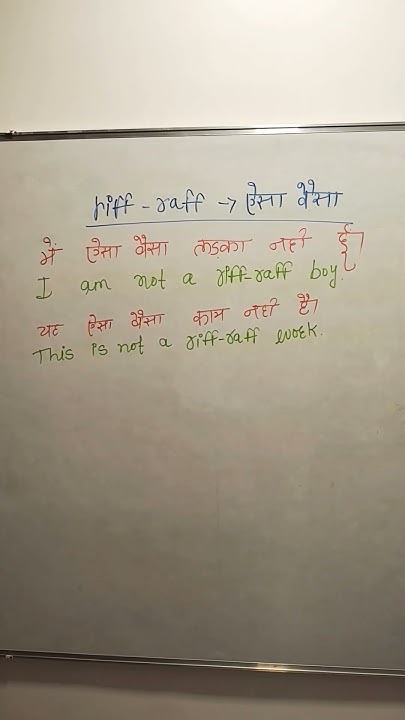 riff-raff → ऐसा वैसा
मैं ऐसा वैसा लड़का नहीं हूँ।
I am not a riff-raff boy.
यह ऐसा वैसा काम नहीं है।
This is not a riff-raff work.